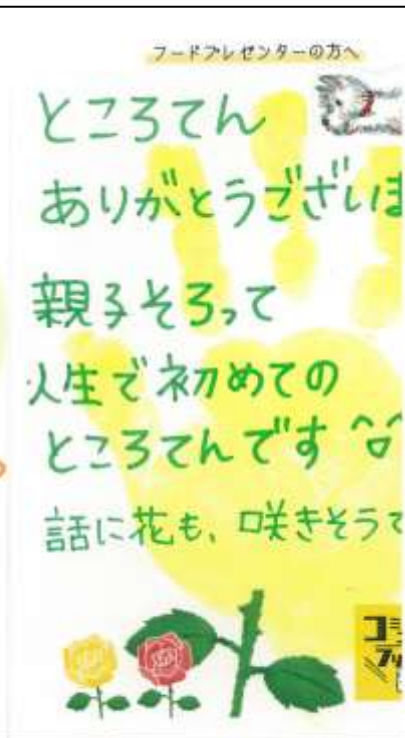 フードプレゼンターの方へ
ところてん
ありがとうございま
親子そろって
人生で初めての
ところてんです^o^
話に花も、咲きそうで